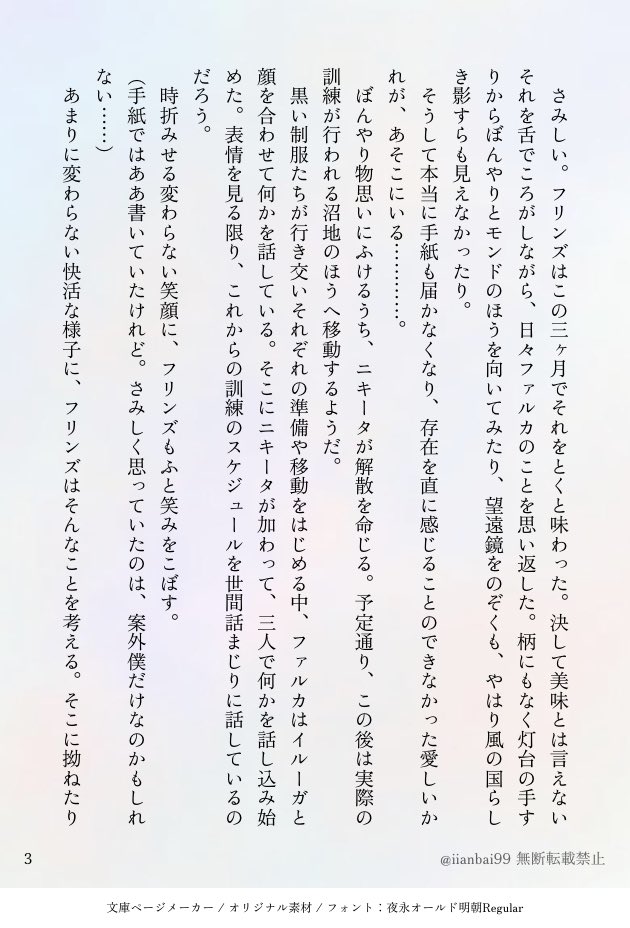 さみしい。フリンズはこの三ヶ月でそれをとくと味わった。決して美味とは言えない
それを舌でころがしながら、日々ファルカのことを思い返した。柄にもなく灯台の手す
りからぼんやりとモンドのほうを向いてみたり、望遠鏡をのぞくも、やはり風の国らし
き影すらも見えなかったり。
　そうして本当に手紙も届かなくなり、存在を直に感じることのできなかった愛しいか
れが、あそこにいる…………。
　ぼんやり物思いにふけるうち、ニキータが解散を命じる。予定通り、この後は実際の
訓練が行われる沼地のほうへ移動するようだ。
　黒い制服たちが行き交いそれぞれの準備や移動をはじめる中、ファルカはイルーガと
顔を合わせて何かを話している。そこにニキータが加わって、三人で何かを話し込み始
めた。表情を見る限り、これからの訓練のスケジュールを世間話まじりに話しているの
だろう。
　時折みせる変わらない笑顔に、フリンズもふと笑みをこぼす。
（手紙ではああ書いていたけれど。さみしく思っていたのは、案外僕だけなのかもしれ
ない……）
　あまりに変わらない快活な様子に、フリンズはそんなことを考える。そこに拗ねたり
3
@iianbai99 無断転載禁止
文庫ページメーカー / オリジナル素材 / フォント：夜永オールド明朝Regular